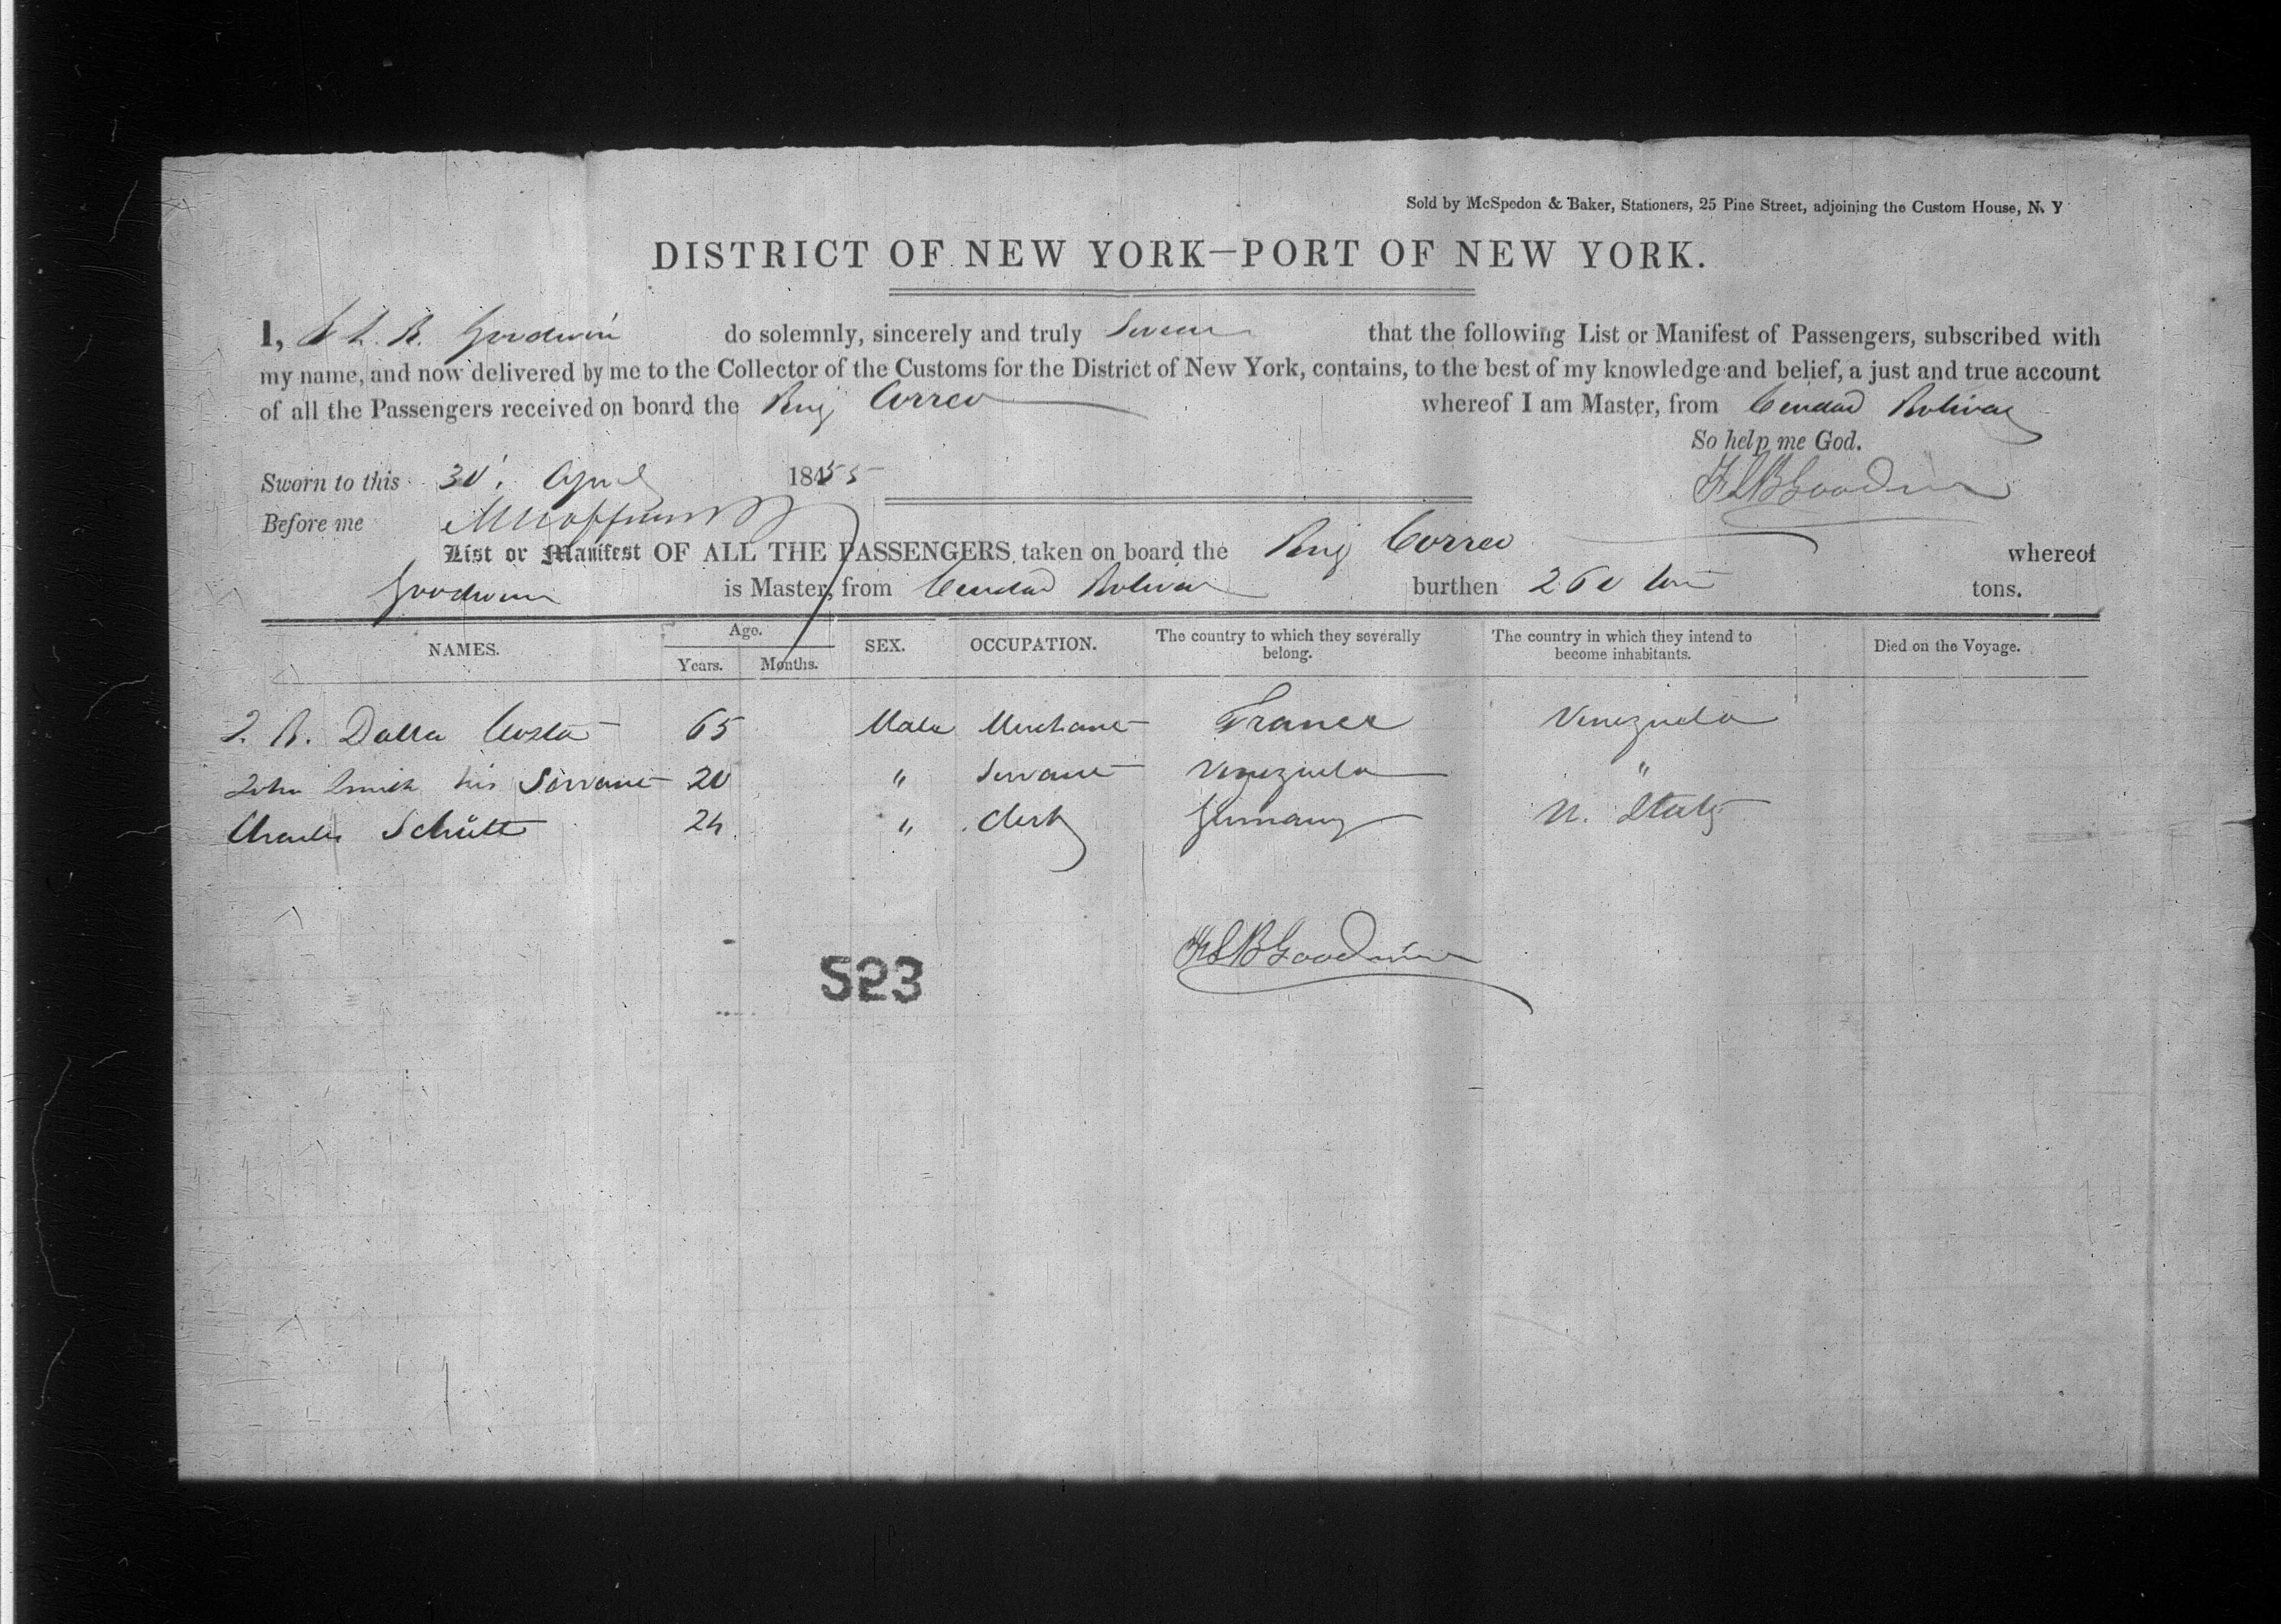 Sold by McSpedon & Baker, Stationers, 25 Pine Street, adjoining the Custom House, N. Y
DISTRICT OF NEW YORK—PORT OF NEW YORK.
I, B. Goodwin do solemnly, sincerely and truly Swear that the following List or Manifest of Passengers, subscribed with
my name, and now delivered by me to the Collector of the Customs for the District of New York, contains, to the best of my knowledge and belief, a just and true account
of all the Passengers received on board the Brig Correo whereof I am Master, from Ceudad Bolivar
So help me God.
Sworn to this 30 April 1855 B Goodwin
Before me
List or Manifest OF ALL THE PASSENGERS taken on board the Brig Correo whereof
Goodwin is Master, from Ceudad Bolivar burthen 260 ton tons.
NAMES. Age. Years. Months. SEX. OCCUPATION. The country to which they severally belong. The country in which they intend to become inhabitants. Died on the Voyage.
B. Dalla Costa 65 Male Merchant France Venezuela
John Smith his Servant 20 " Servant Venezuela "
Charles Schütt 24 " Clerk Germany U. States
B Goodwin
523